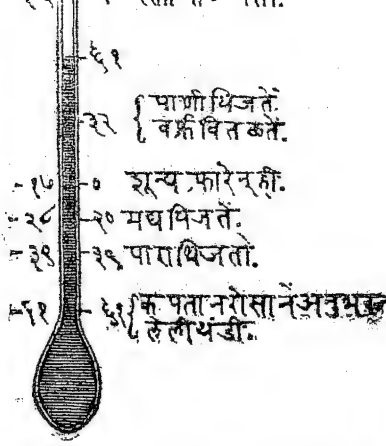 ६१
३२ { पाणी थिजतें.
वर्फ वितळतें.
-१७ -० शून्य फारेनही.
-२८ -२० मद्य थिजतें.
-३९ -३९ पारा थिजतो.
-६१ -६१ { कपतान रोसानें अनुभव
लेली थंडी.